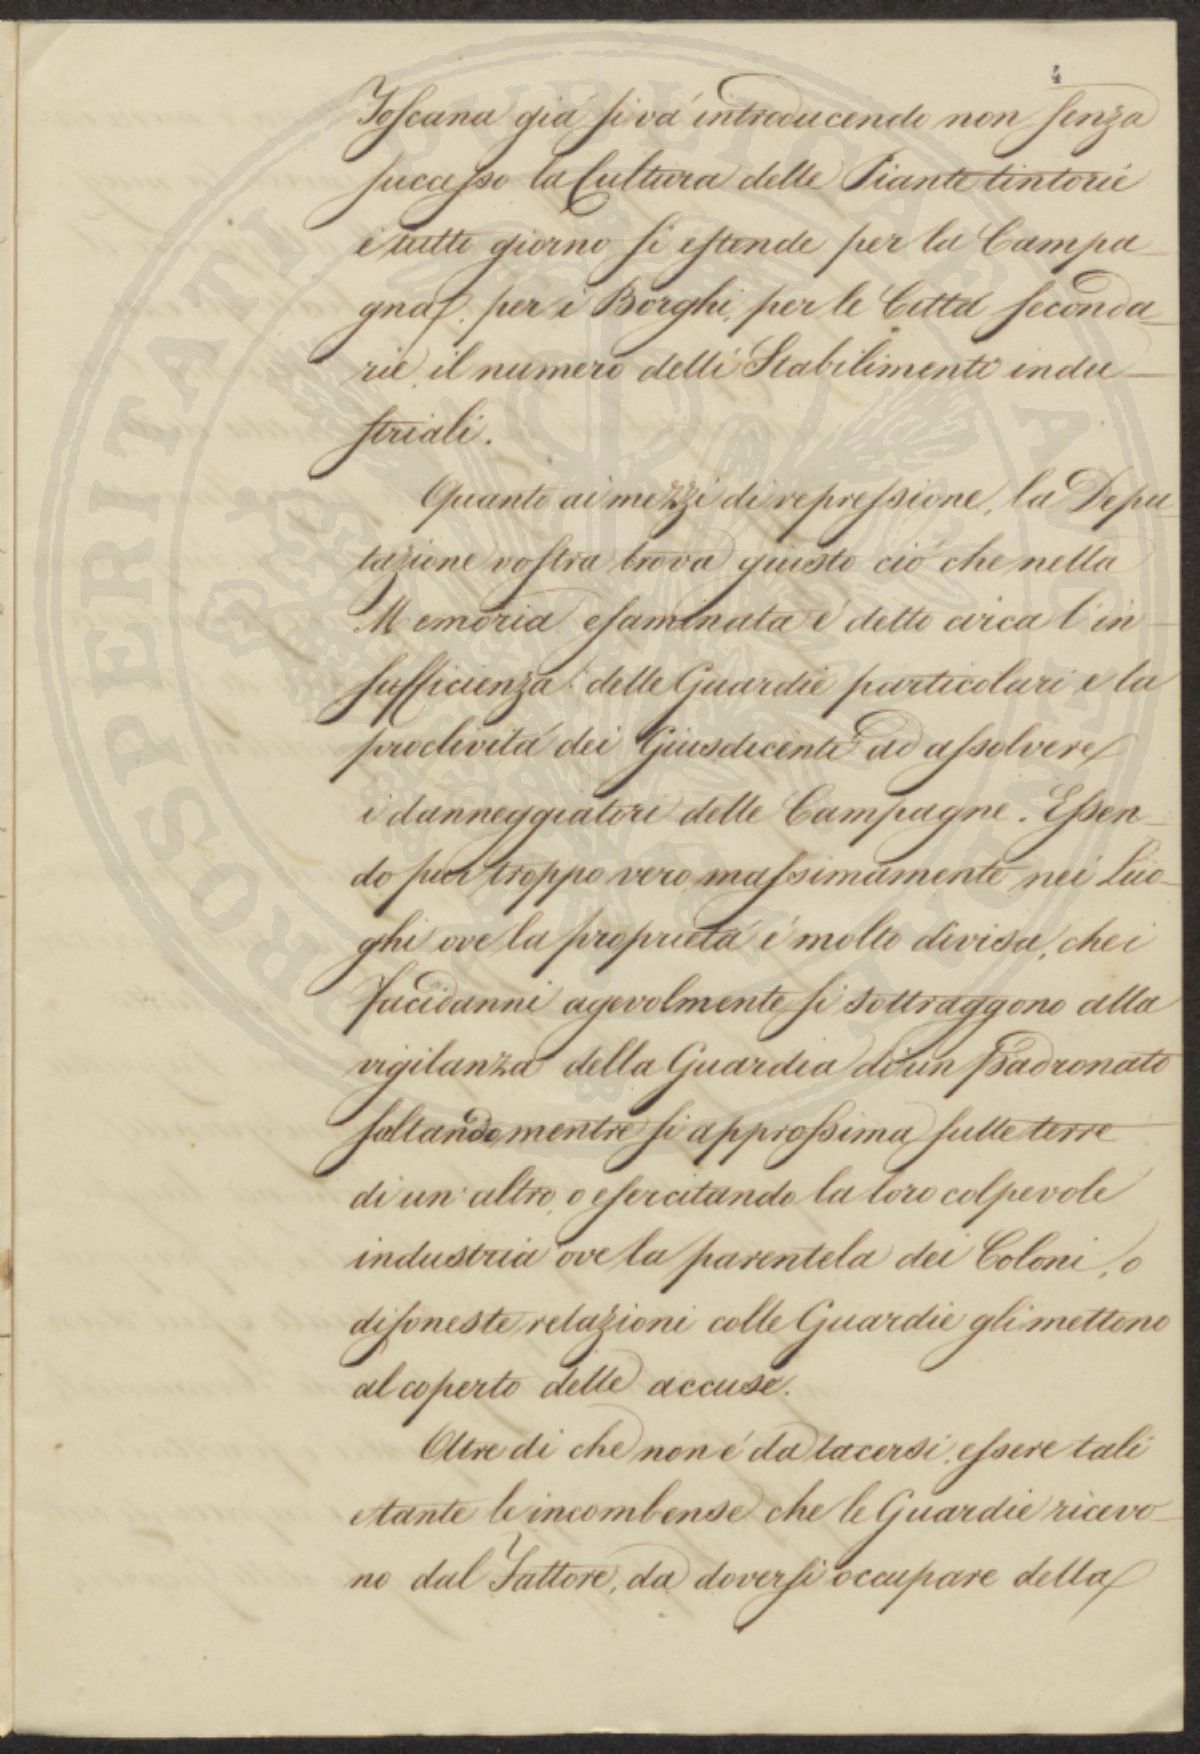 4
Toscana giá si vá introducendo non senza
successo la Cultura delle Piante tintorie
e tutto giorno si estende per la Campa-
gna, per i Borghi, per le Cittá seconda-
rie, il numero delli Stabilimenti indu-
striali.
Quanto ai mezzi di repressione, la Depu-
tazione vostra trova giusto ció che nella
Memoria esaminata é detto circa l'in-
sufficienza delle Guardie particolari e la
proclivitá dei Giusdicenti ad assolvere
i danneggiatori delle Campagne. Essen-
do pur troppo vero massimamente nei Luo-
ghi ove la proprietá é molto divisa, che i
Facidanni agevolmente si sottraggono alla
vigilanza della Guardia di un Padronato
saltando mentre si approssima sulle terre
di un'altro, o esercitando la loro colpevole
industria ove la parentela dei Coloni, o
disoneste relazioni colle Guardie gli mettono
al coperto delle accuse.
Oltre di che non é da tacersi, essere tali
e tante le incombense che le Guardie ricevo-
no dal Fattore, da doversi occupare della
PROSPERITATI PUBLICAE AUGENDAE